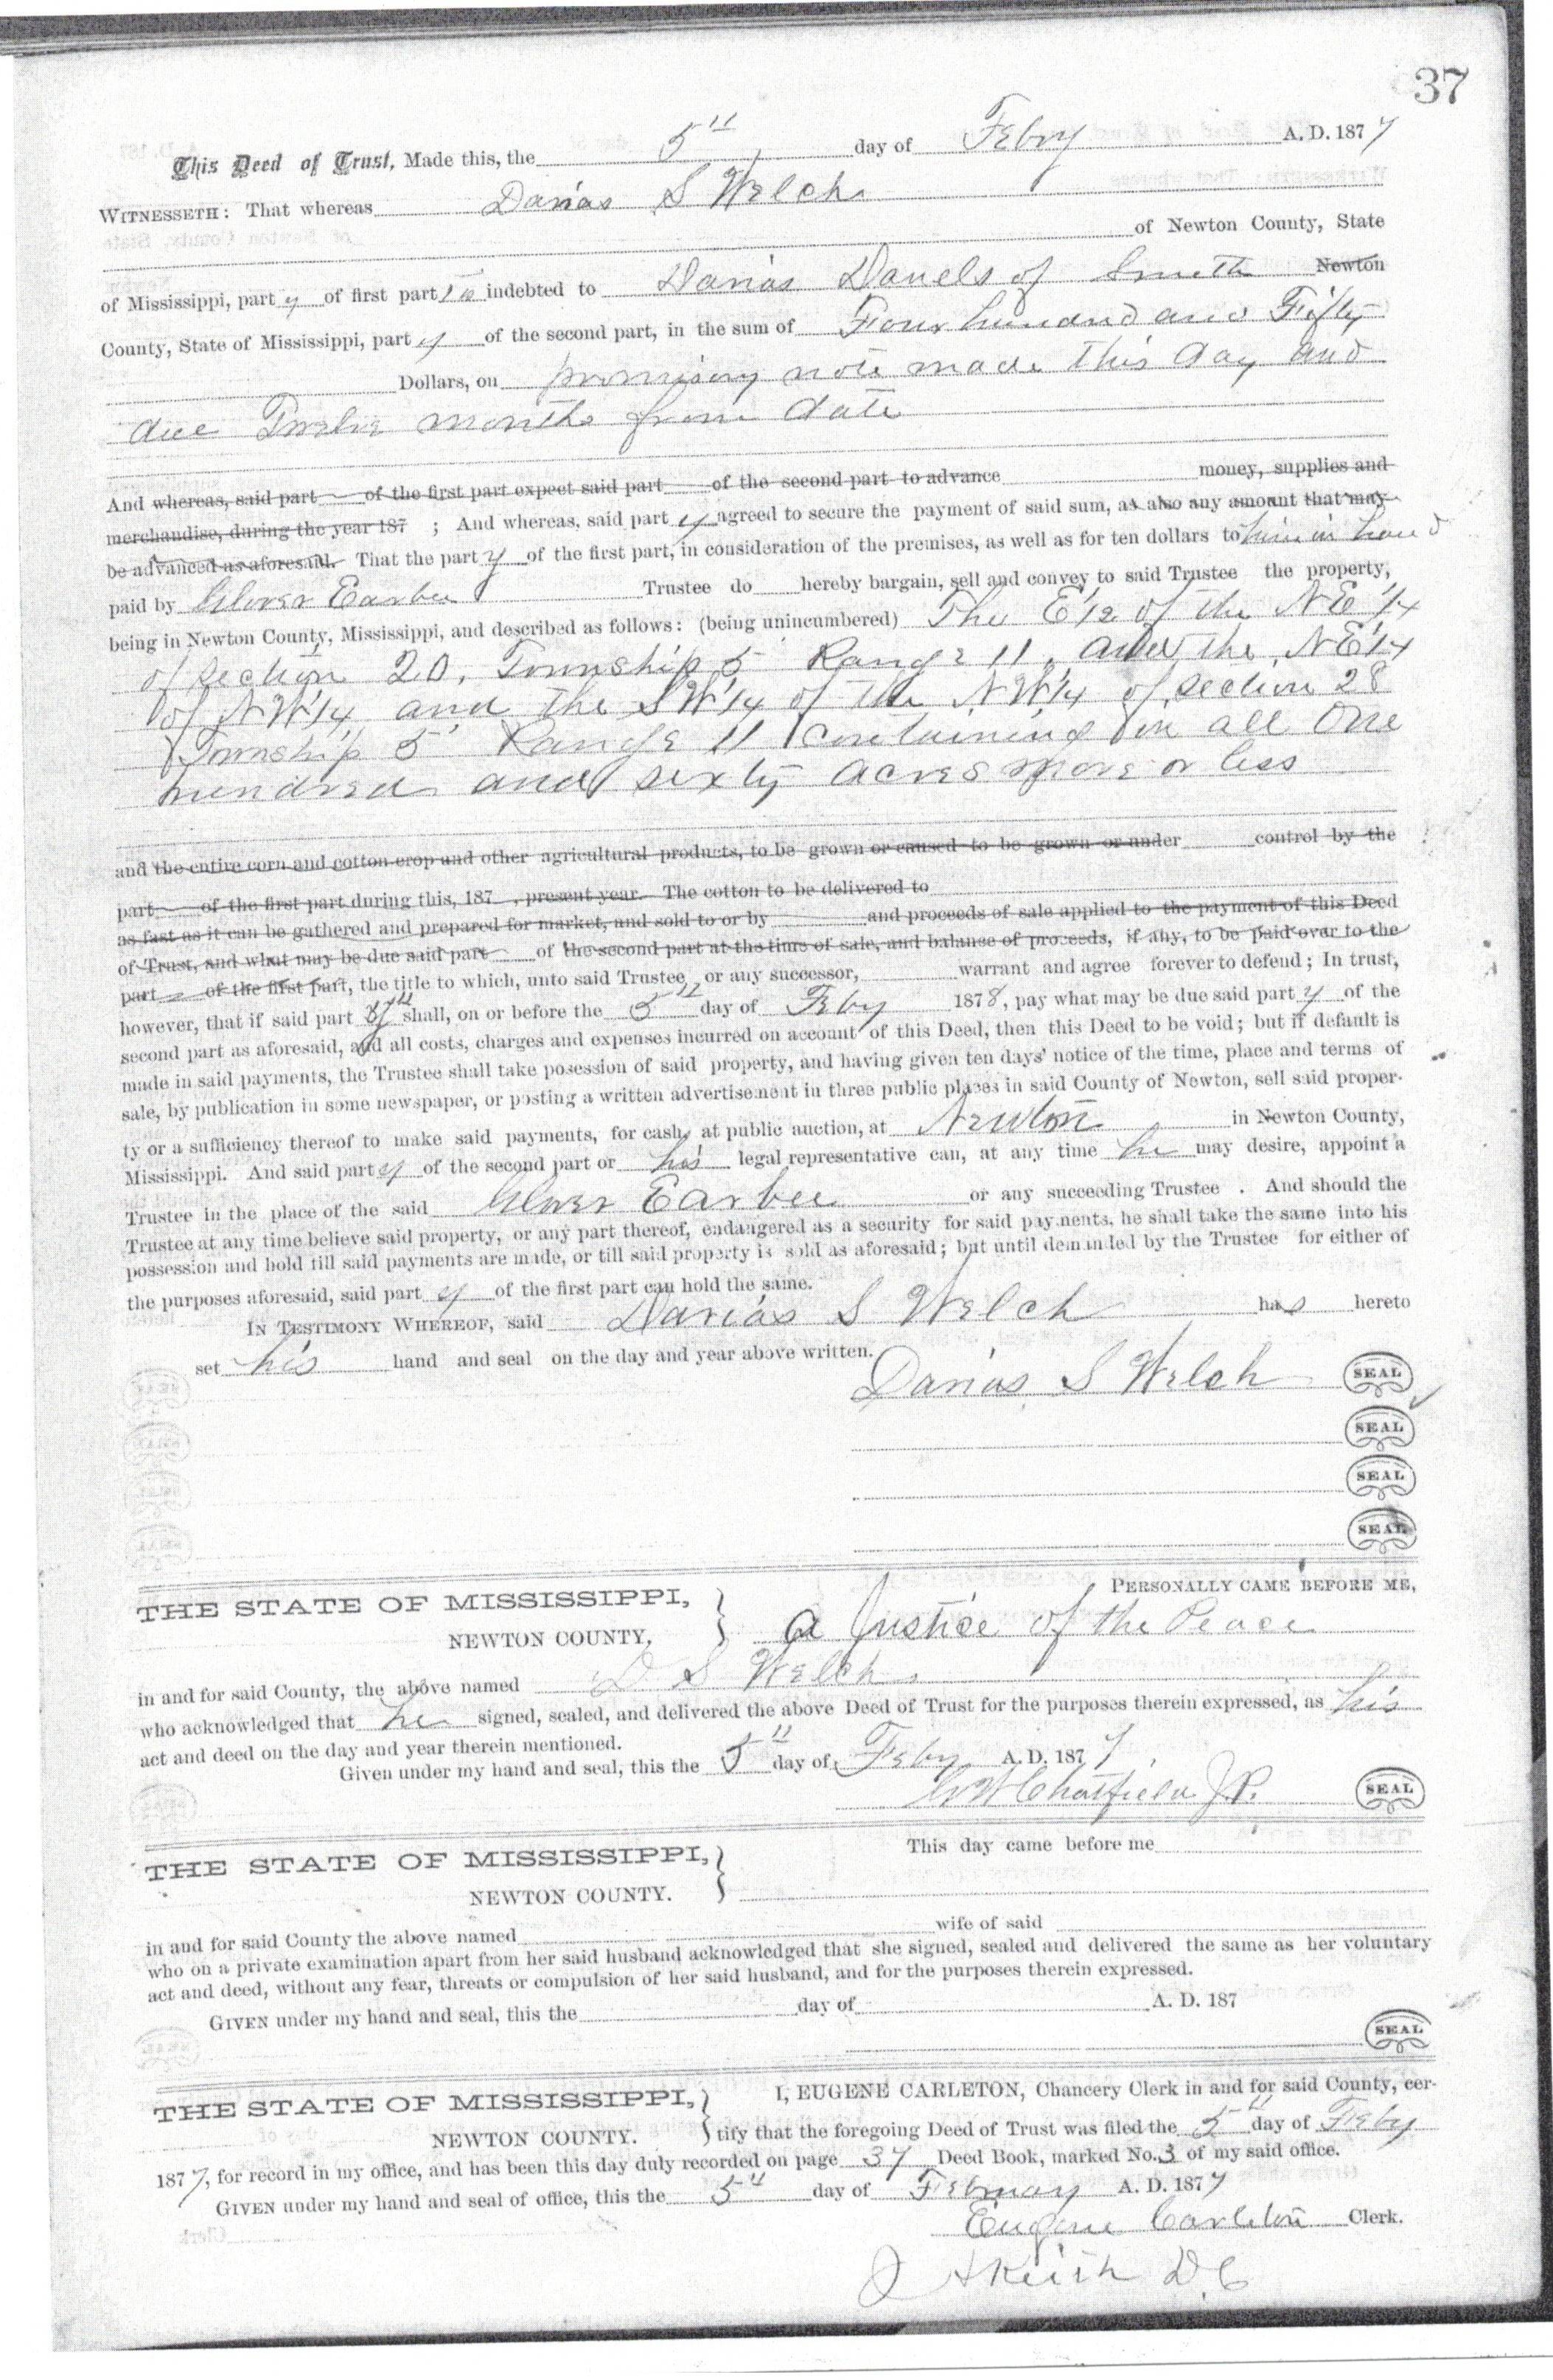 37
This Deed of Trust, Made this, the 5" day of Febry A. D. 1877
WITNESSETH: That whereas Darias S Welch
of Newton County, State
of Mississippi, party of first part is indebted to Darias Danels of Smith Newton
County, State of Mississippi, party of the second part, in the sum of Four hundred and Fifty
Dollars, on promisory note made this day and
due Twelve months from date
And whereas, said part of the first part expect said part of the second part to advance money, supplies and
merchandise, during the year 187 ; And whereas, said party agreed to secure the payment of said sum, as also any amount that may
be advanced as aforesaid. That the party of the first part, in consideration of the premises, as well as for ten dollars to him in hand
paid by Oliver Earbee Trustee do hereby bargain, sell and convey to said Trustee the property,
being in Newton County, Mississippi, and described as follows: (being unincumbered) The E1/2 of the NE1/4
of Section 20, Township 5 Range 11, and the NE1/4
of NW1/4 and the SW1/4 of the NW1/4 of Section 28
Township 5 Range 11 Containing in all One
hundred and sixty acres more or less
and the entire corn and cotton crop and other agricultural products, to be grown or caused to be grown or under control by the
part of the first part during this, 187 , present year. The cotton to be delivered to
as fast as it can be gathered and prepared for market, and sold to or by and proceeds of sale applied to the payment of this Deed
of Trust, and what may be due said part of the second part at the time of sale, and balance of proceeds, if any, to be paid over to the
part of the first part, the title to which, unto said Trustee, or any successor, warrant and agree forever to defend; In trust,
however, that if said part shall, on or before the 5" day of Feby 1878, pay what may be due said party of the
second part as aforesaid, and all costs, charges and expenses incurred on account of this Deed, then this Deed to be void; but if default is
made in said payments, the Trustee shall take posession of said property, and having given ten days' notice of the time, place and terms of
sale, by publication in some newspaper, or posting a written advertisement in three public places in said County of Newton, sell said proper-
ty or a sufficiency thereof to make said payments, for cash, at public auction, at Newton in Newton County,
Mississippi. And said party of the second part or his legal representative can, at any time he may desire, appoint a
Trustee in the place of the said Oliver Earbee or any succeeding Trustee . And should the
Trustee at any time believe said property, or any part thereof, endangered as a security for said payments, he shall take the same into his
possession and hold till said payments are made, or till said property is sold as aforesaid; but until demanded by the Trustee for either of
the purposes aforesaid, said party of the first part can hold the same.
IN TESTIMONY WHEREOF, said Darias S Welch has hereto
set his hand and seal on the day and year above written.
Darias S Welch SEAL
SEAL
SEAL
SEAL
THE STATE OF MISSISSIPPI, PERSONALLY CAME BEFORE ME,
NEWTON COUNTY, a Justice of the Peace
in and for said County, the above named D S Welch
who acknowledged that he signed, sealed, and delivered the above Deed of Trust for the purposes therein expressed, as his
act and deed on the day and year therein mentioned.
Given under my hand and seal, this the 5" day of Feby A. D. 1877
Chatfield J.P. SEAL
THE STATE OF MISSISSIPPI, This day came before me
NEWTON COUNTY.
in and for said County the above named wife of said
who on a private examination apart from her said husband acknowledged that she signed, sealed and delivered the same as her voluntary
act and deed, without any fear, threats or compulsion of her said husband, and for the purposes therein expressed.
GIVEN under my hand and seal, this the day of A. D. 187
SEAL
THE STATE OF MISSISSIPPI, I, EUGENE CARLETON, Chancery Clerk in and for said County, cer-
NEWTON COUNTY. tify that the foregoing Deed of Trust was filed the 5" day of Feby
1877, for record in my office, and has been this day duly recorded on page 37 Deed Book, marked No. 3 of my said office.
GIVEN under my hand and seal of office, this the 5" day of February A. D. 1877
Eugene Carleton Clerk.
J H Keith D.C